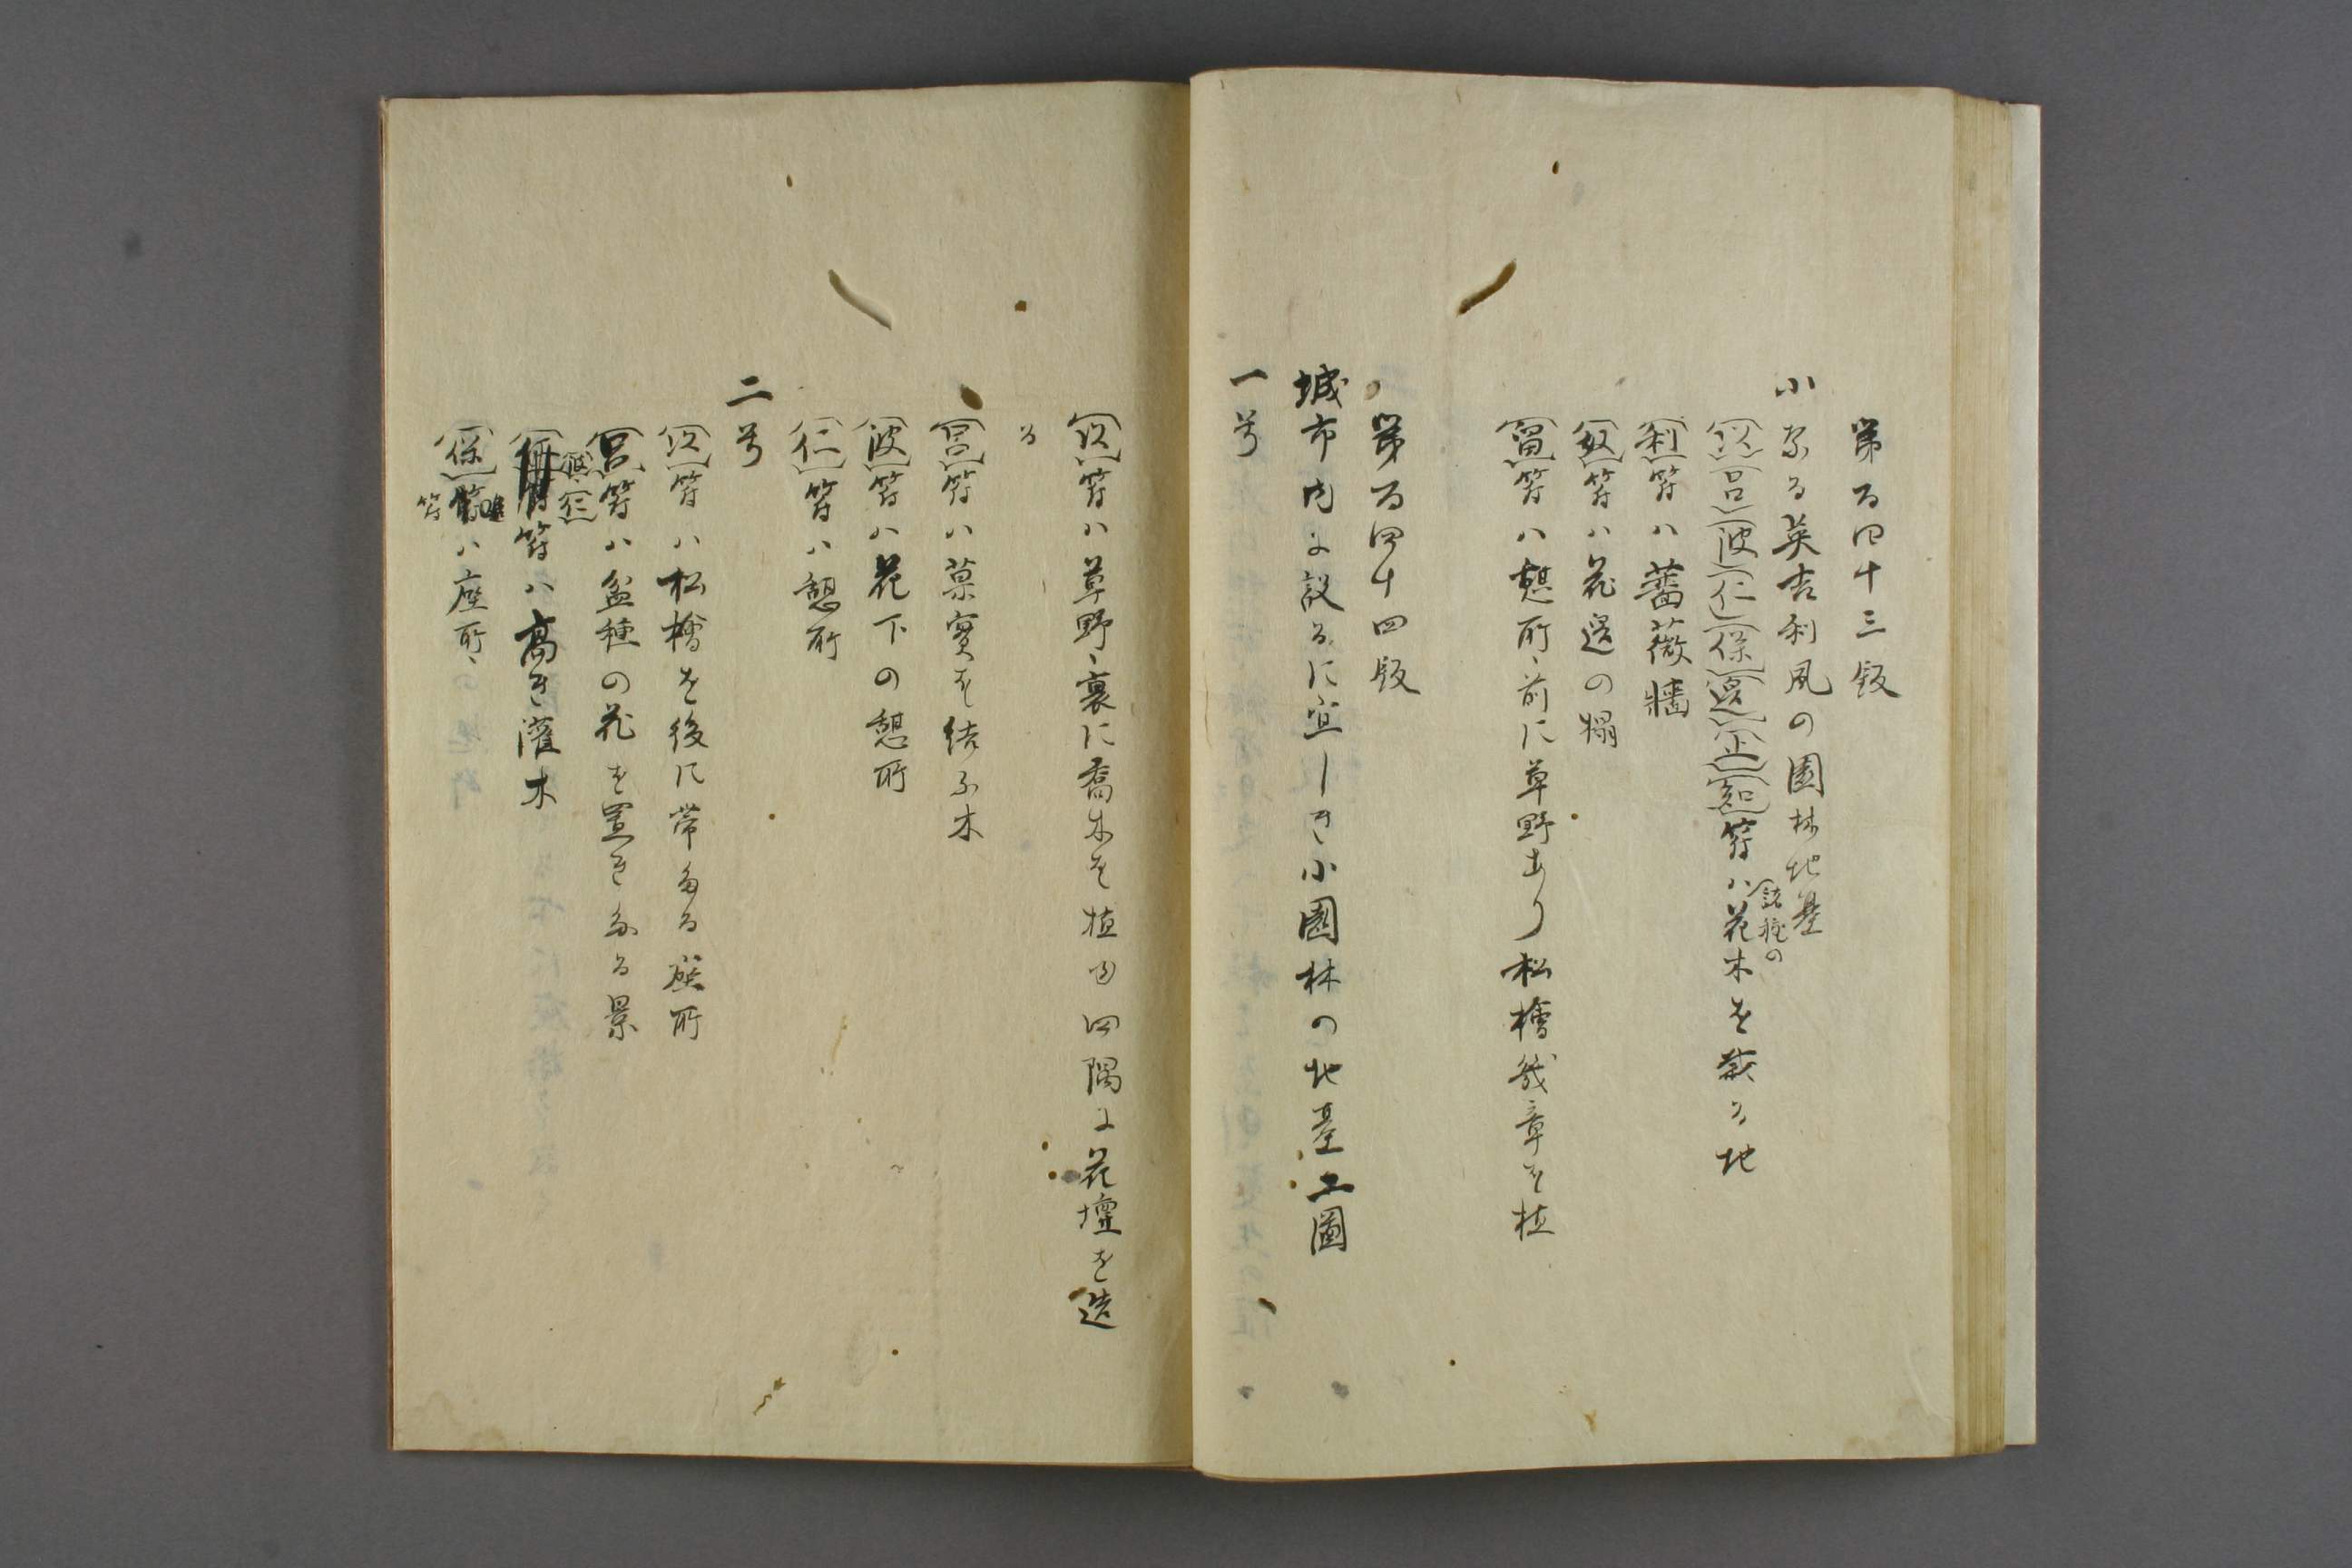 第百四十三版
小なる英吉利風の園林地基
(以)(呂)(波)(仁)(保)(邊)(止)(知)符ハ諸種の花木を栽る地
(利)符ハ薔薇牆
(奴)符ハ花邊の榻
(留)符ハ憩所、前に草野あり松檜幾章を植
第百四十四版
城市内に設るに宜しき小園林の地基二圖
一号
(以)符ハ草野、裏に喬木を植ゆ四隅に花壇を造
る
(呂)符ハ菓實を結ふ木
(波)符ハ花下の憩所
(仁)符ハ憩所
二号
(以)符ハ松檜を後に帯ふる座所
(呂)符ハ盆種の花を置きたる景
(波)(仁)符ハ高き灌木
(保)符ハ座所、